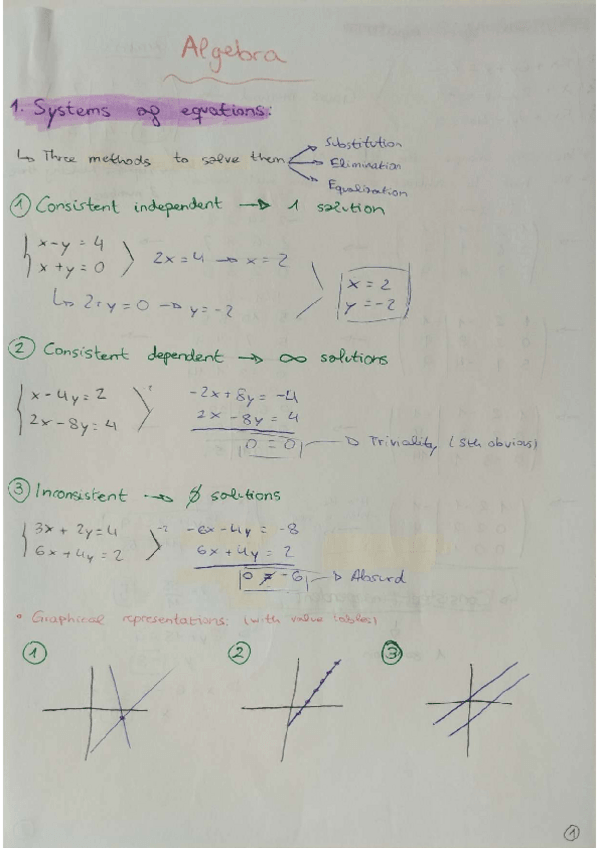 Algebra
1. Systems of equations:
↳ Three methods to solve them
Substitution
Elimination
Equalisation
① Consistent independent → 1 solution
x-y = 4
x+y = 0
2x = 4 → x = 2
↳ 2+y = 0 → y = -2
x = 2
y = -2
② Consistent dependent → ∞ solutions
x - 4y = 2
2x - 8y = 4
-2x + 8y = -4
2x - 8y = 4
0 = 0 → Triviality (sth obvious)
③ Inconsistent → ∅ solutions
3x + 2y = 4
6x + 4y = 2
-2
-6x - 4y = -8
6x + 4y = 2
0 ≠ -6 → Absurd
• Graphical representations: (with value tables)
① ② ③
①